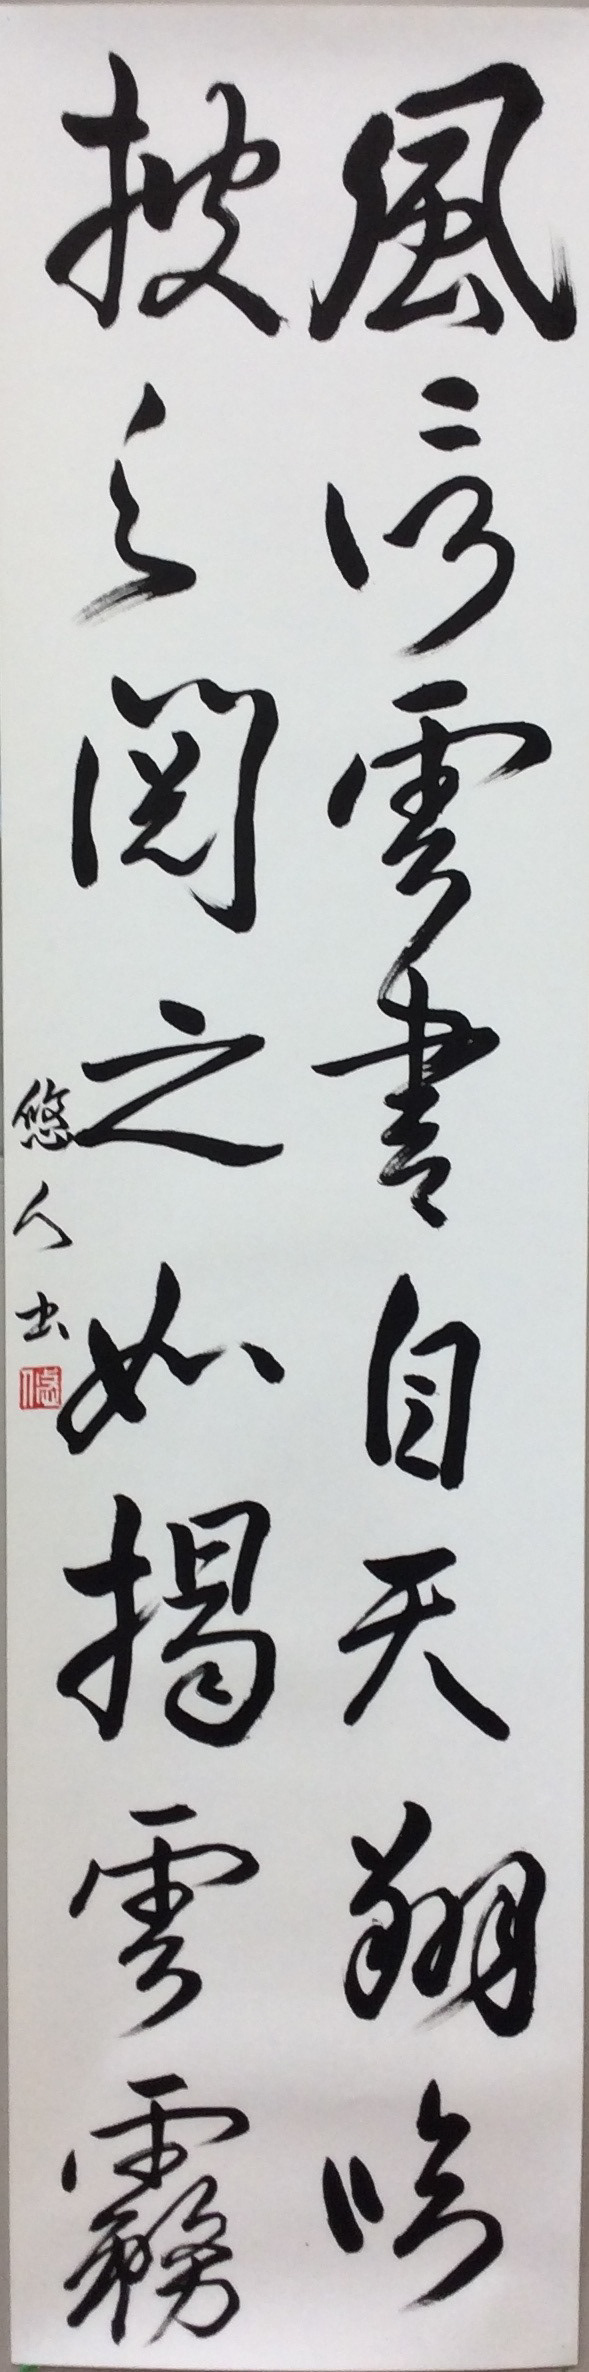 風信雲書自天翔臨
披之閲之如掲雲霧
悠人書